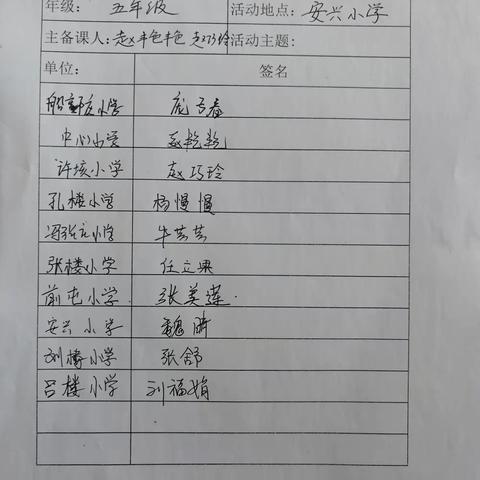 年级: 五年级 活动地点: 安兴小学
主备课人: 赵艳艳 赵巧玲 活动主题:
单位: 签名
小学
中心小学 赵艳艳
许垓小学 赵巧玲
孔楼小学 杨慢慢
小学 牛芸芸
张楼小学 任立梁
前屯小学. 张美莲.
安兴小学 魏晴
刘楼小学 张舒
吕楼小学 刘福娟